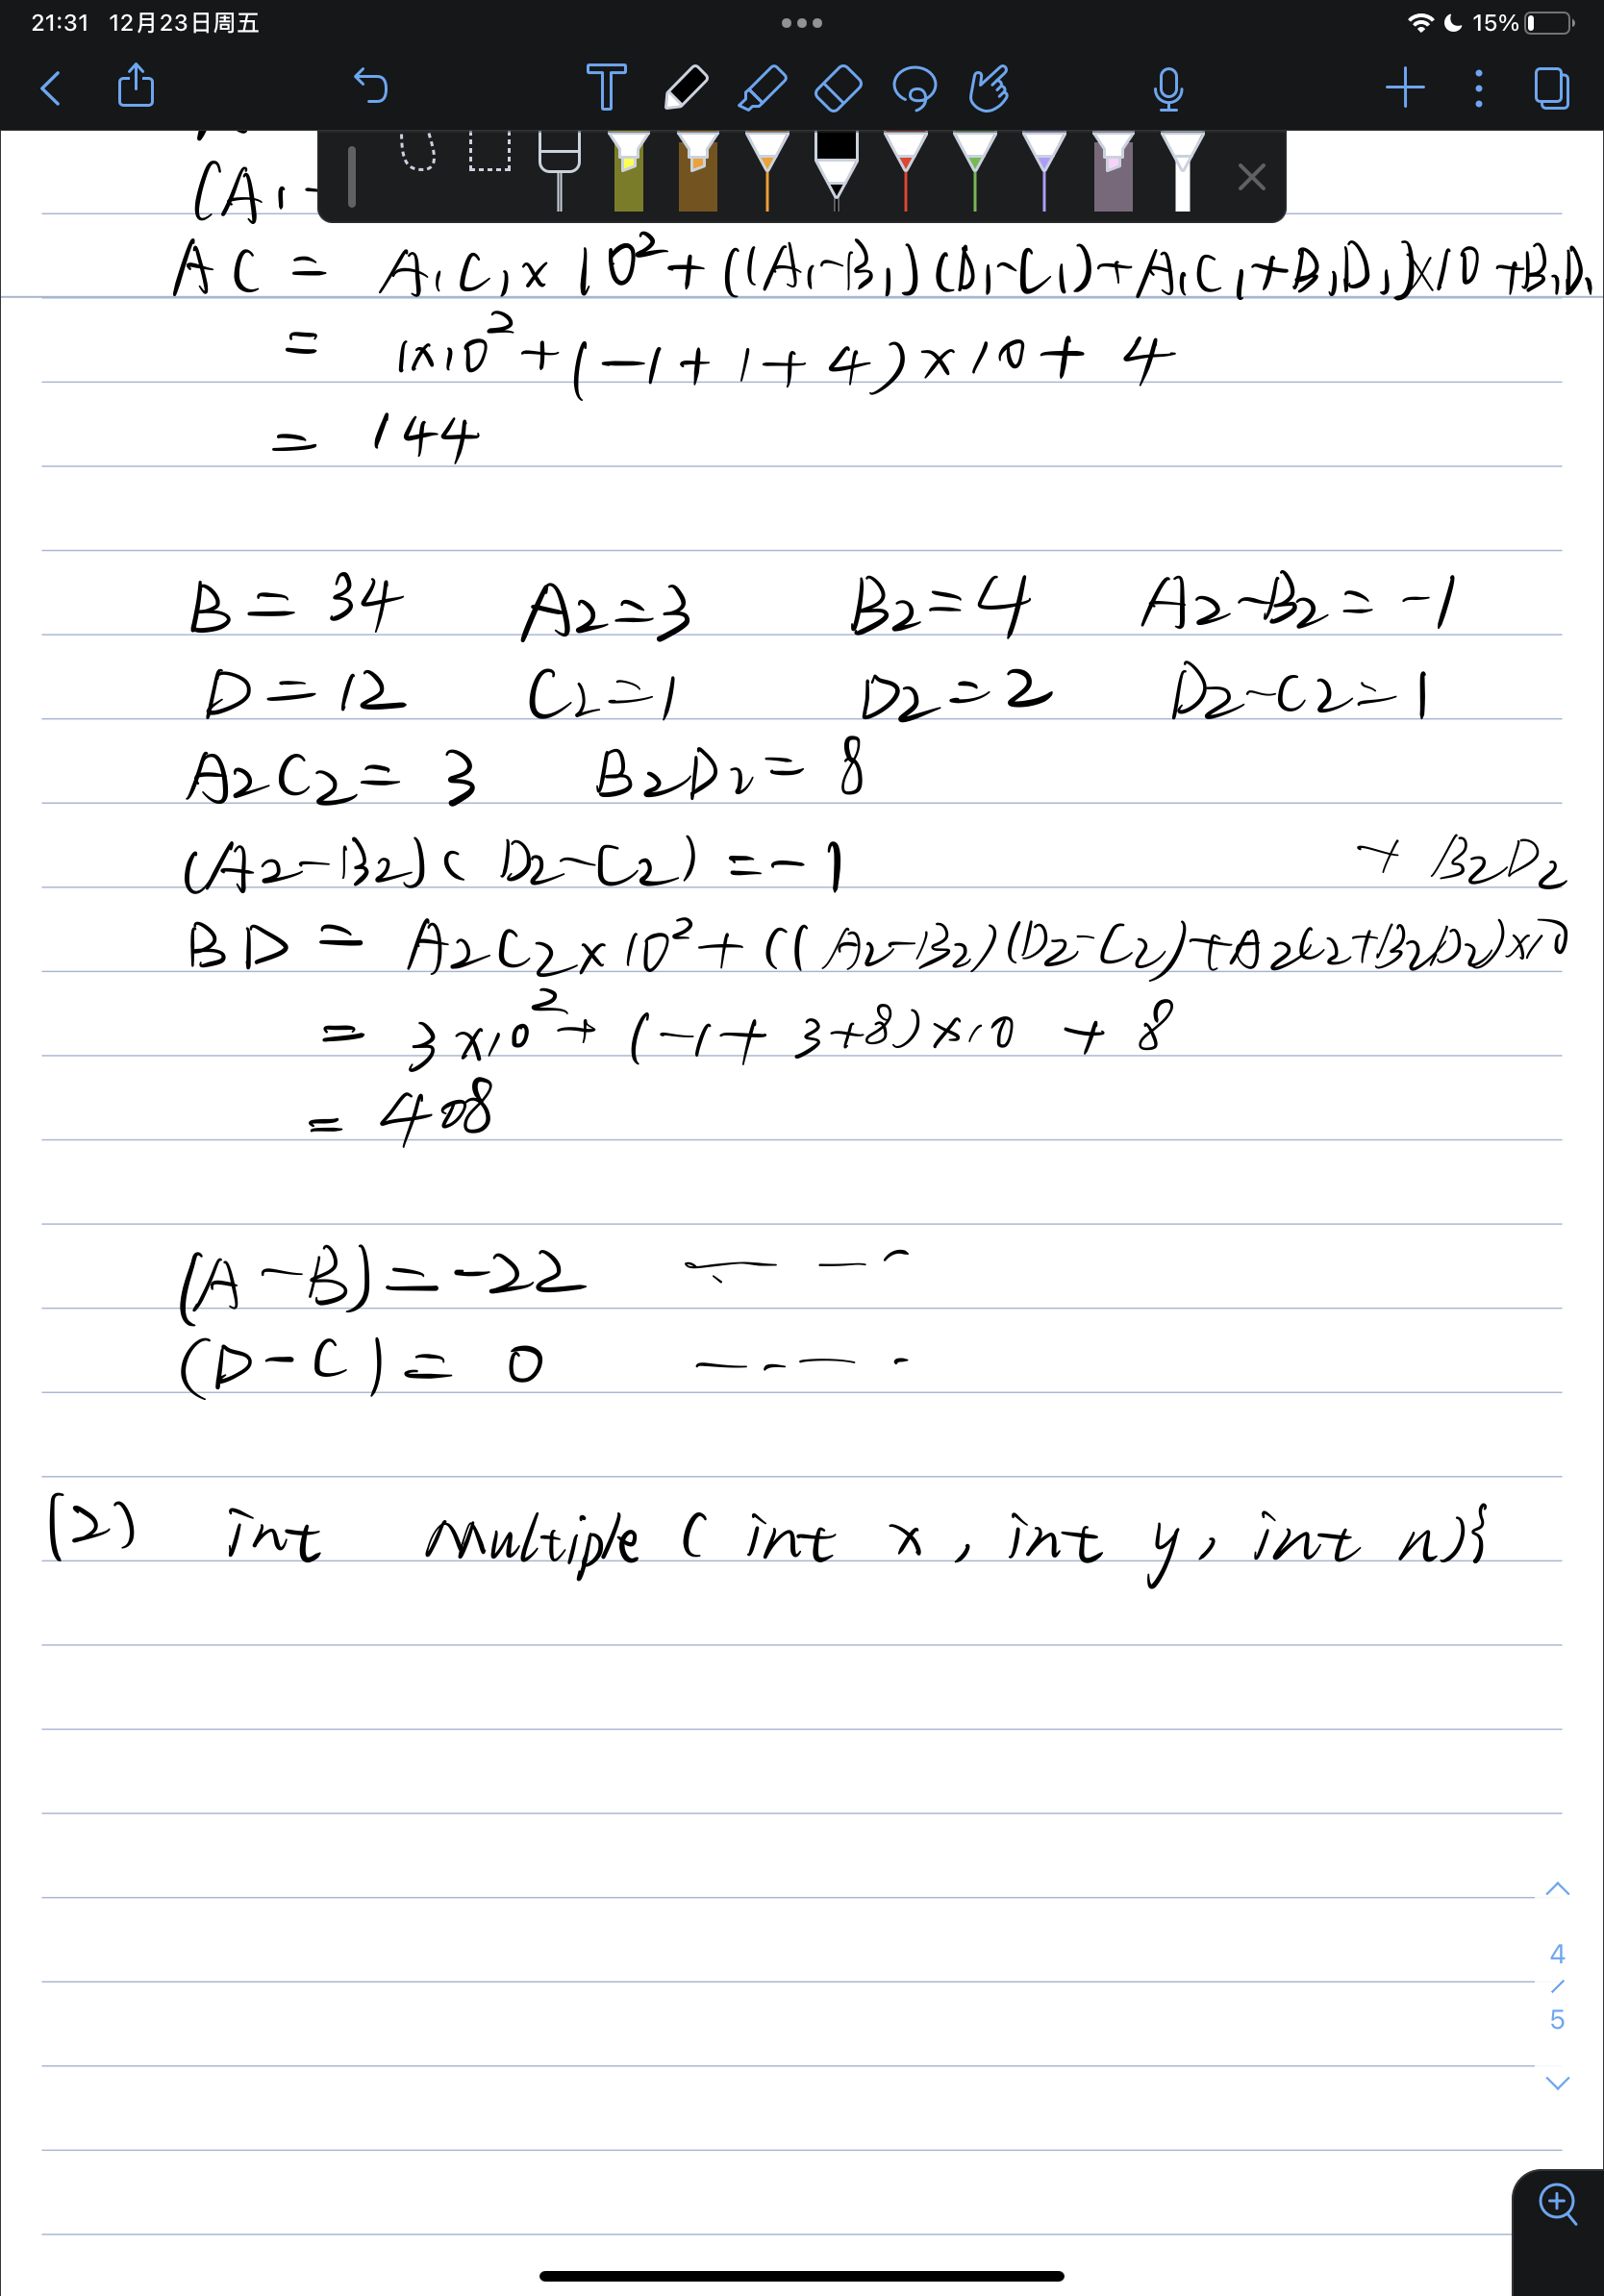 21:31 12月23日周五 15%
(A₁-
AC = A₁C₁×10²+((A₁-B₁)(D₁-C₁)+A₁C₁+B₁D₁)×10+B₁D₁
= 1×10²+(-1+1+4)×10+4
= 144
B=34 A₂=3 B₂=4 A₂-B₂=-1
D=12 C₂=1 D₂=2 D₂-C₂=1
A₂C₂=3 B₂D₂=8
(A₂-B₂)(D₂-C₂)=-1
BD = A₂C₂×10²+((A₂-B₂)(D₂-C₂)+A₂C₂+B₂D₂)×10 + B₂D₂
= 3×10²+(-1+3+8)×10 + 8
= 408
(A-B)=-22
(D-C)= 0
(2) int multiple (int x, int y, int n){
4
/
5